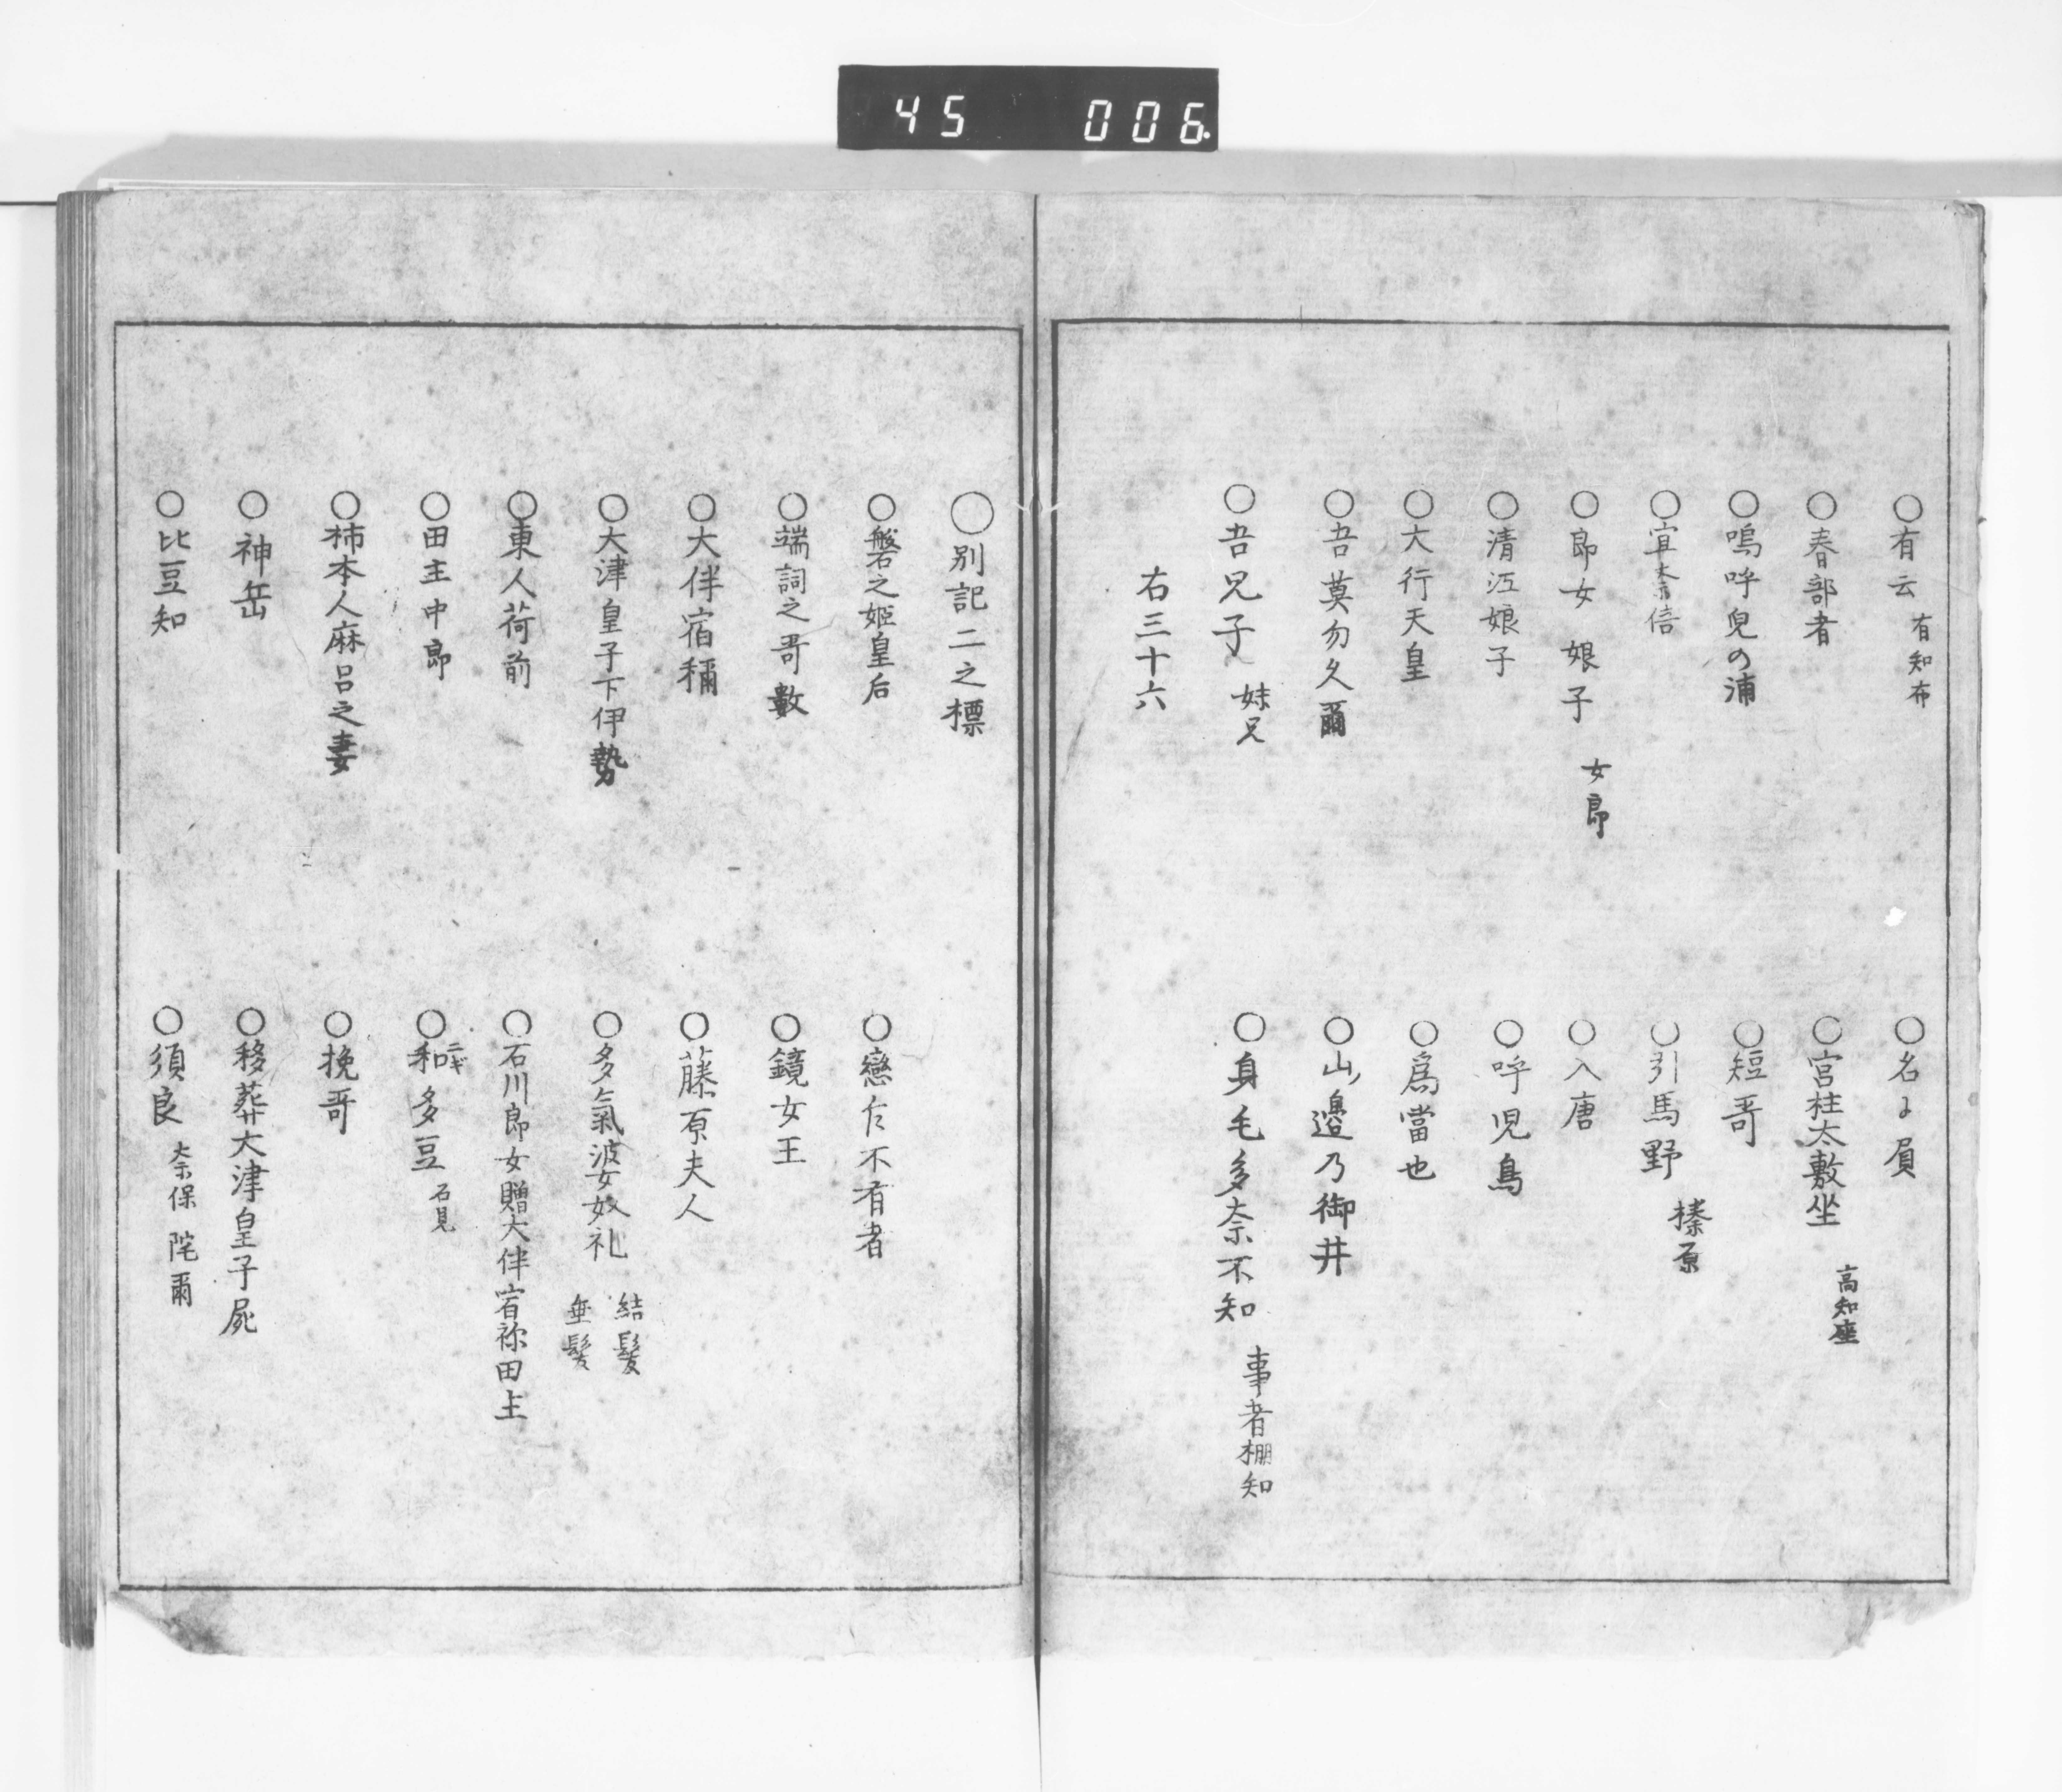 45 006.
○有云 有知布
○名〻屓
○春部者
○宮柱太敷坐 高知座
○嗚呼兒の浦
○短哥
○宜奈倍
○引馬野 榛原
○郎女 娘子 女郎
○入唐
○清江娘子
○呼児鳥
○大行天皇
○為當也
○吾莫勿久爾
○山邊乃御井
○吾兄子 妹兄
○身毛多奈不知 事者棚知
右三十六
○別記二之標
○磐之姫皇后
○戀乍不有者
○端詞之哥數
○鏡女王
○大伴宿禰
○藤原夫人
○大津皇子下伊勢
○多氣波奴礼 結髪 垂髪
○東人荷前
○石川郎女贈大伴宿祢田主
○田主中郎
○和多豆 ニギ 石見
○柿本人麻呂之妻
○挽哥
○神岳
○移葬大津皇子屍
○比豆知
○須良 奈保 陀爾